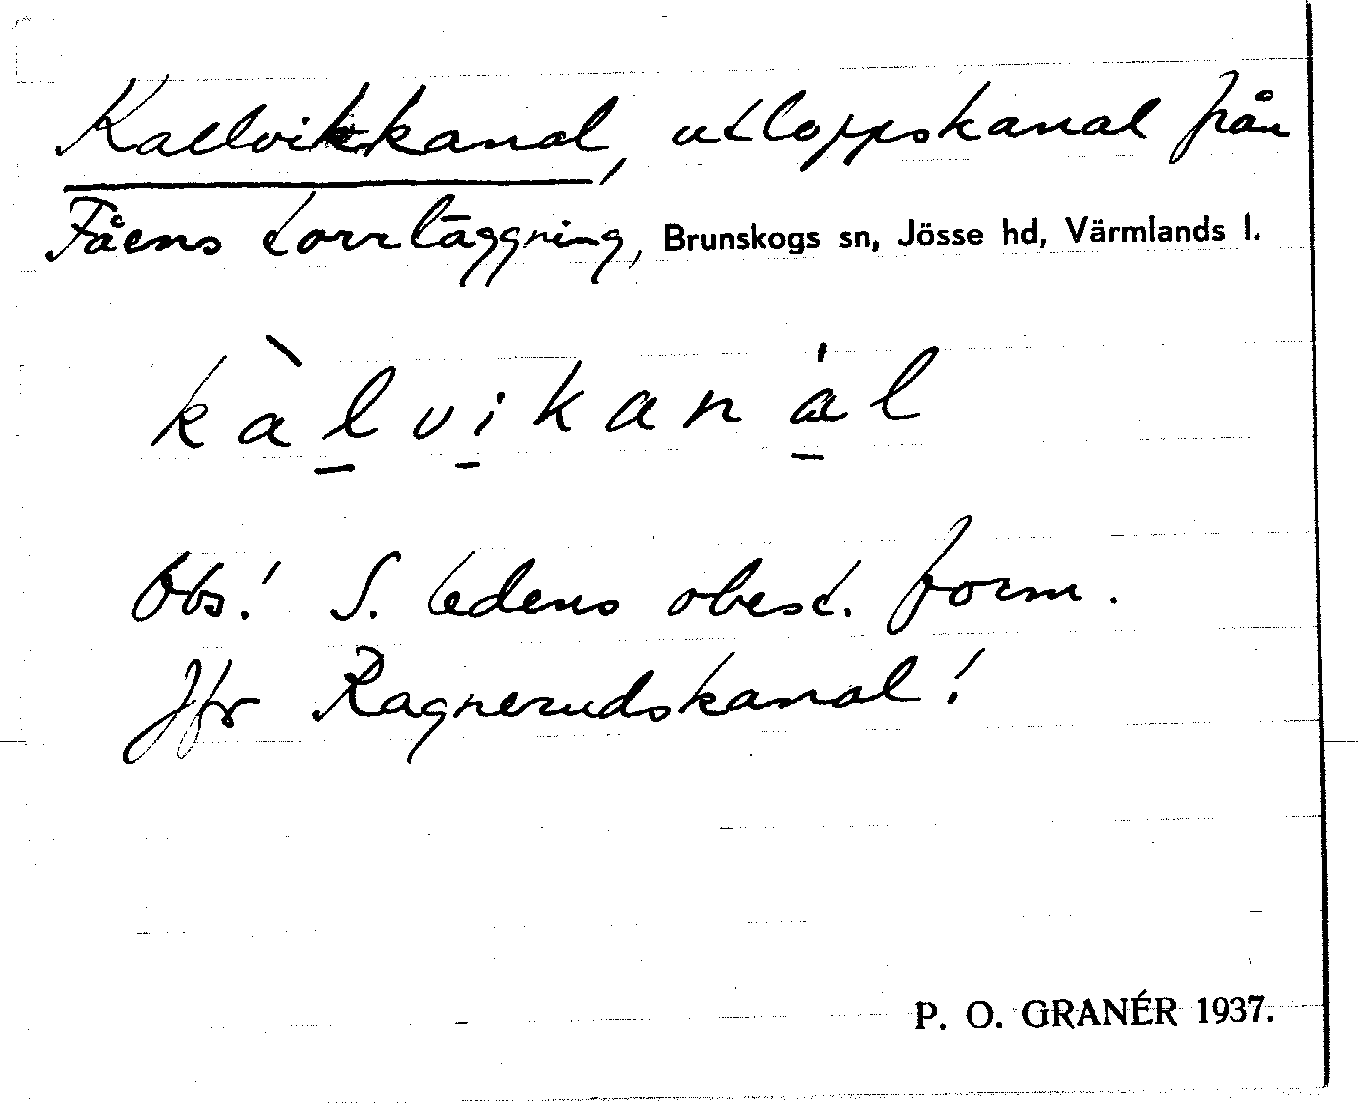 Kallvikkanal, utloppskanal från
Fåens torrläggning, Brunskogs sn, Jösse hd, Värmlands l.
kàlvikanál
Obs! S. ledens obest. form.
Jfr Ragnerudskanal!
P. O. GRANÉR 1937.